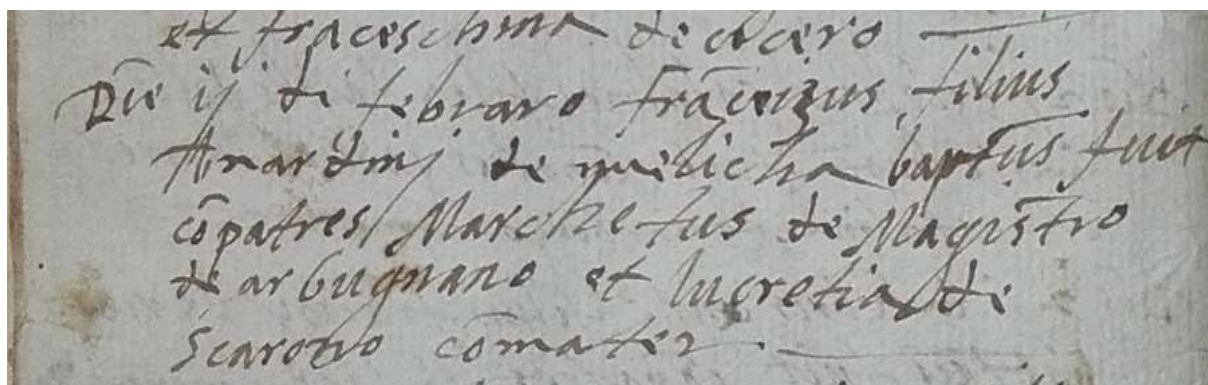 et fraceschina de cicero
Die ij di febraro frācescus filius
de baptus fuit
cōpatres Marchetus de Magistro
de arbugnano et lucretia de
scarono cōmater